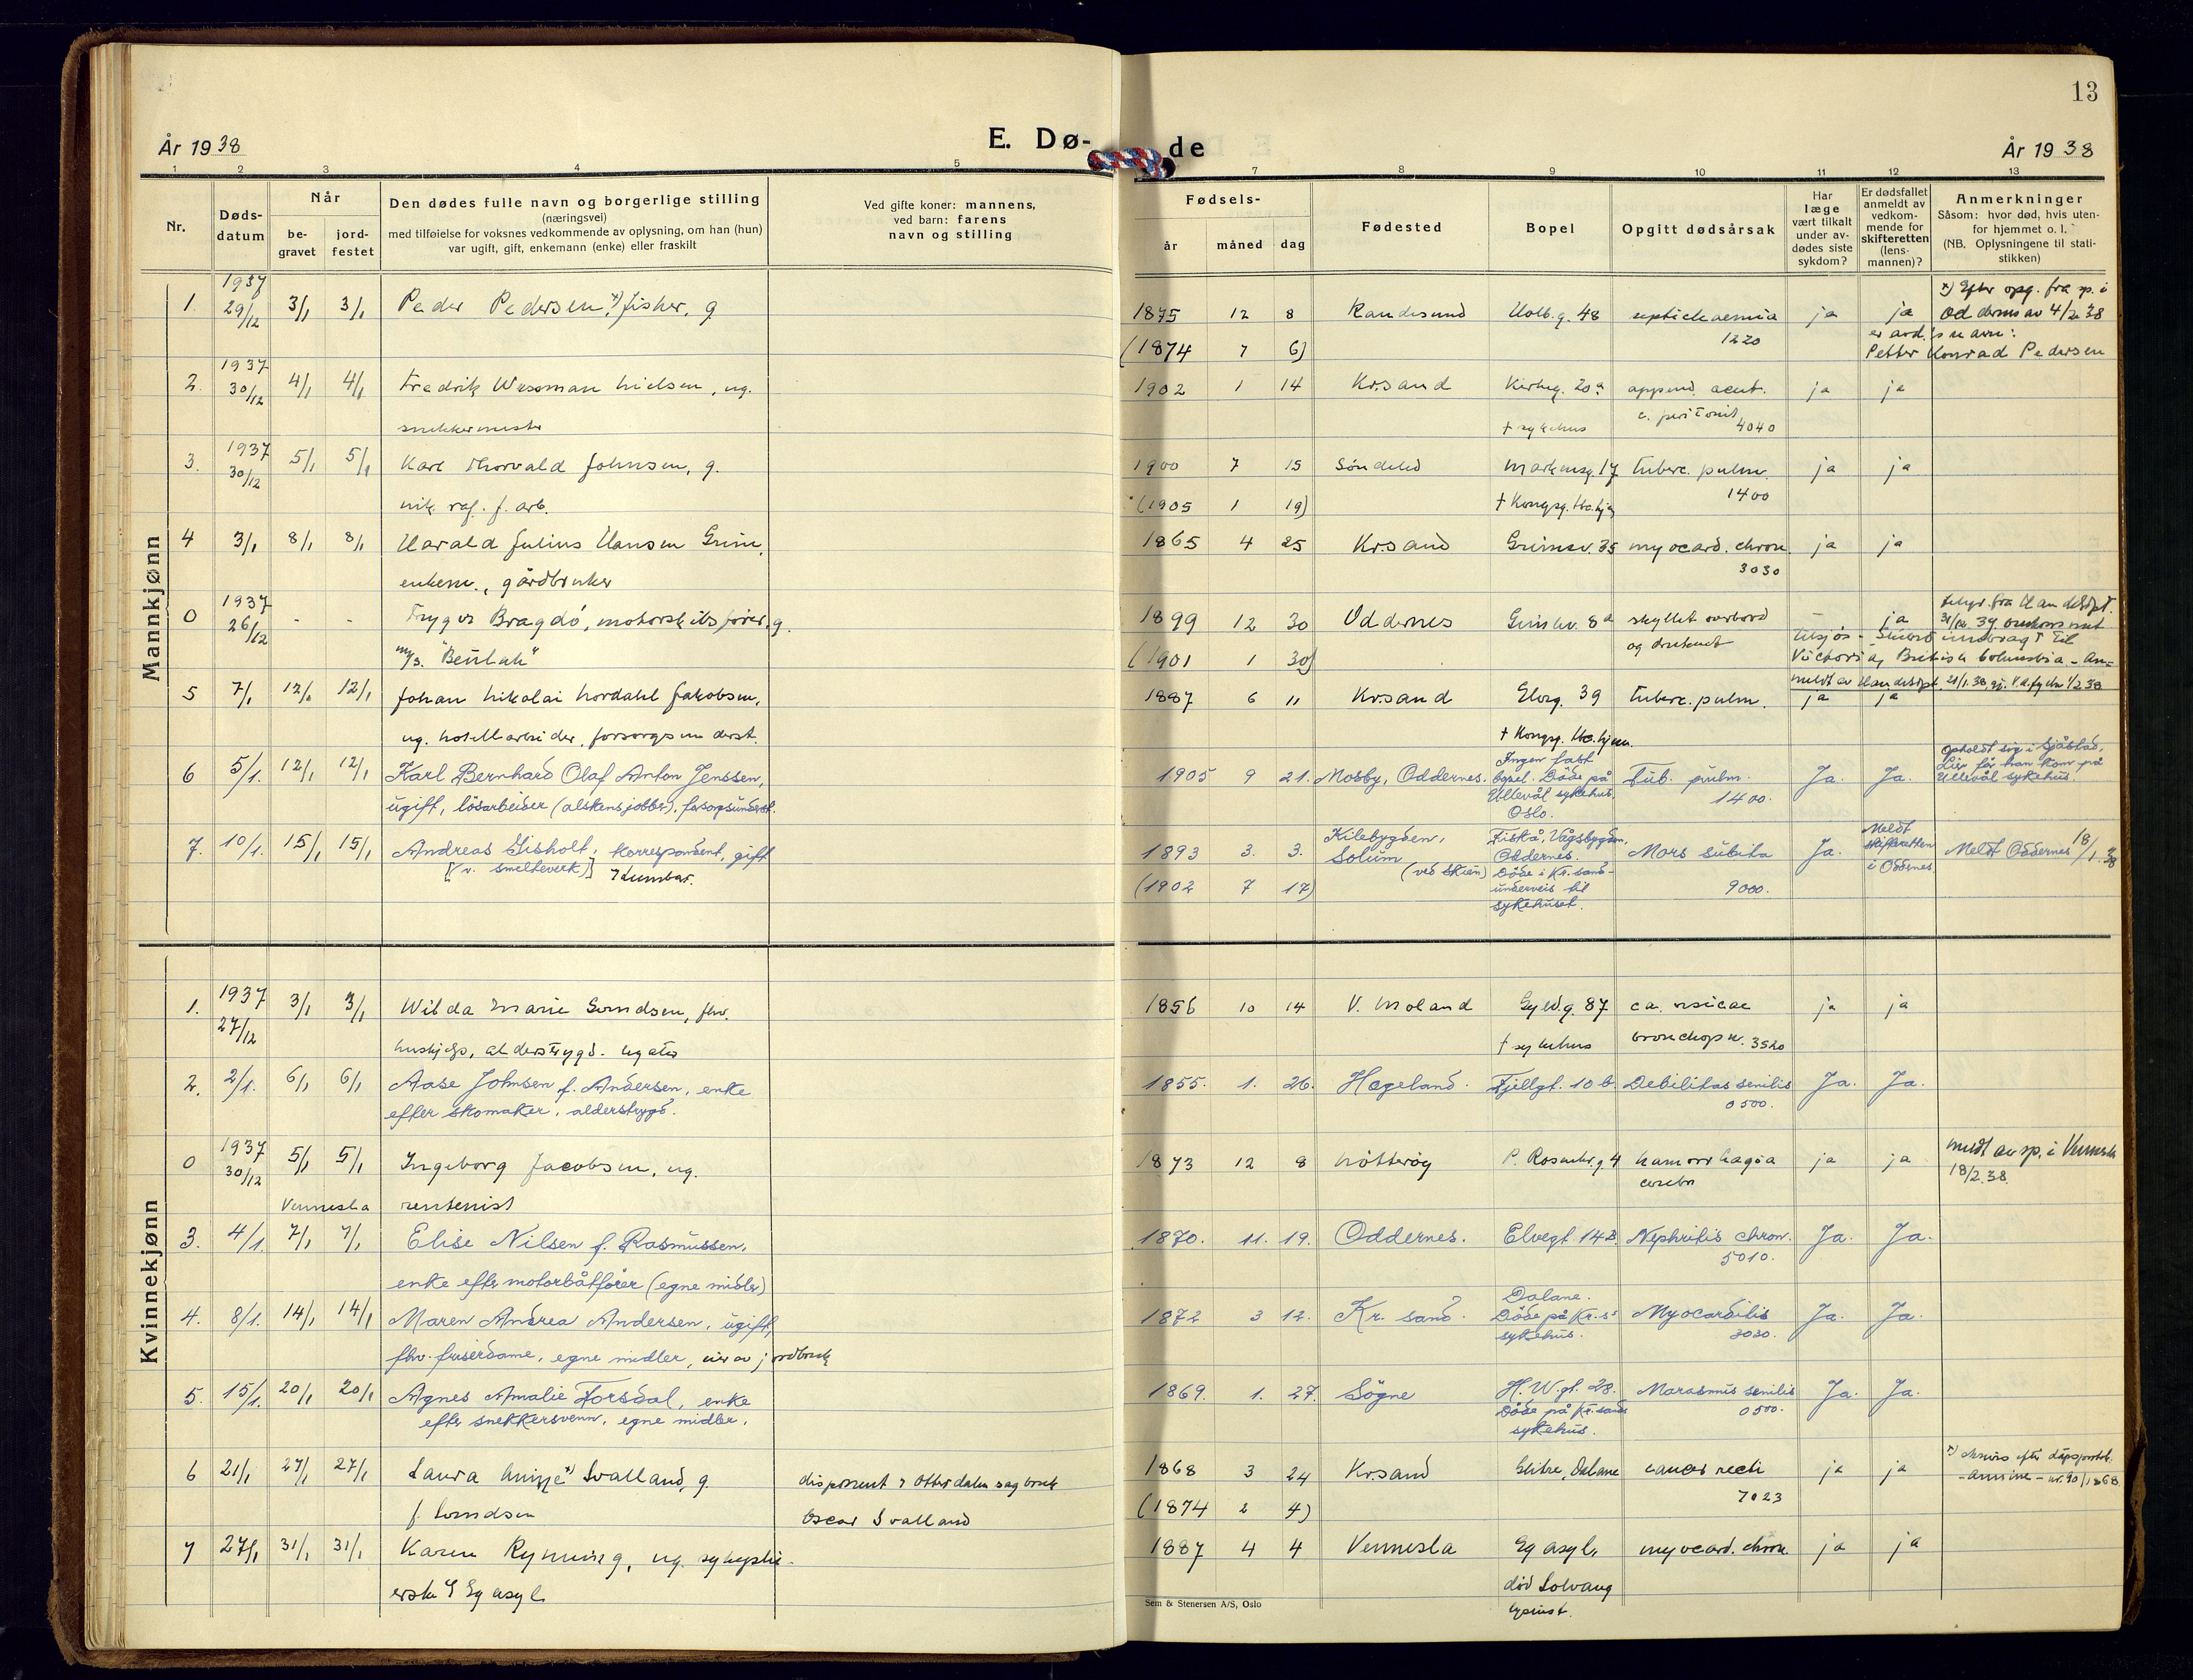 13
År 1938
E. Dø-
de
År 1938
1 2 3 4 5 7 8 9 10 11 12 13
Nr.
Døds-
datum
Når
be-
gravet
jord-
festet
Den dødes fulle navn og borgerlige stilling
(næringsvei)
med tilføielse for voksnes vedkommende av oplysning, om han (hun)
var ugift, gift, enkemann (enke) eller fraskilt
Ved gifte koner: mannens,
ved barn: farens
navn og stilling
Fødsels-
år måned dag
Fødested
Bopel
Opgitt dødsårsak
Har
læge
vært tilkalt
under av-
dødes siste
sykdom?
Er dødsfallet
anmeldt av
vedkom-
mende for
skifteretten
(lens-
mannen)?
Anmerkninger
Såsom: hvor død, hvis uten-
for hjemmet o. l.
(NB. Oplysningene til stati-
stikken)
Mannkjønn
1. 1937 29/12 3/1 3/1 Peder Pedersen, x) fisker, g. 1875 12 8 Randesund Holb.g. 48 septichaemia ja ja x) Efter opg. fra sp. i
Oddernes av 4/2 38
(1874 7 6) 1220 er avd.'s navn:
Petter Konrad Pedersen
2. 1937 30/12 4/1 4/1 Fredrik Wessman Nielsen, ug. 1902 1 14 Kr.sand Kirkeg. 20a append. acut. ja ja
snekkermester † sykehus c. peritonit 4040
3. 1937 30/12 5/1 5/1 Karl Thorvald Johnsen, g. 1900 7 15 Søndeled Markensg. 17 tuberc. pulm. ja ja
nik. raf. f. arb. (1905 1 19) † Kongsg. tbc.hjem 1400
4 3/1 8/1 8/1 Harald Julius Hansen Grim, 1865 4 25 Kr.sand Grimsv. 35 myocard. chron ja ja
enkem., gårdbruker 3030
0 1937 26/12 - - Trygve Bragdø, motorskibsfører, g. 1899 12 30 Oddernes Grimsv. 8a skyllet overbord - ja
m/s. "Beulah" (1901 1 30) og druknet
Victoria, British Columbia - An-
meldt av Handelsdpt. 21/1.38
5 7/1 12/1 12/1 Johan Nikolai Nordahl Jakobsen, 1887 6 11 Kr.sand Elvg. 39 tuberc. pulm. ja ja
ug. hotellarbeider, forsorgsunderst. † Kongsg. tbc.hjem.
6 5/1. 12/1 12/1 Karl Bernhard Olaf Anton Jenssen, 1905 9 21. Mosby, Oddernes. Ingen fast
bopel. Døde på
Ullevål sykehus.
Oslo. Tub. pulm. 1400. Ja. Ja. Opholdt sig i Sjåstad,
Lier før han kom på
Ullevål sykehus.
ugift, løsarbeider (alskens jobber), forsorgsunderst.
7. 10/1. 15/1 15/1 Andreas Gisholt, korrespondent, gift 1893 3. 3. Kilebygden,
Solum
(ved Skien) Fiskå, Vågsbygden,
Oddernes.
Døde i Kr.sand
underveis til
sykehuset. Mors subita Ja. Meldt
skifteretten
i Oddernes Meldt Oddernes 18/1 38
[v. smelteverk] (1902 7 17) 9000.
Kvinnekjønn
1. 1937 27/12 3/1 3/1 Wilda Marie Gundsen, fhv. 1856 10 14 V. Moland Gyld.g. 87 ca. vesicae ja ja
† sykehus bronchopn. 3520
2. 2/1. 6/1 6/1 Aase Johnsen f. Andersen, enke 1855. 1. 26. Hægeland. Fjellgt. 10 b. Debilitas senilis Ja. Ja.
efter skomaker, alderstrygd. 0500.
0 1937 30/12 5/1 5/1 Ingeborg Jacobsen, ug. 1873 12 8 Nøtterøy P. Rosenkr.g 4 hæmorrhagia ja ja meldt av sp. i Vennesla
Vennesla rentenist cerebri 18/2.38.
3. 4/1. 7/1 7/1 Elise Nilsen f. Rasmussen, 1870. 11. 19. Oddernes. Elvegt. 14B. Nephritis chron. Ja. Ja.
enke efter motorbåtfører (egne midler) 5010.
4. 8/1. 14/1 14/1 Maren Andrea Andersen, ugift, 1872 3 12. Kr. sand. Dalane.
Døde på Kr.s.
sykehus. Myocarditis Ja. Ja.
fhv. friserdame, egne midler, eier av jordbruk 3030.
5. 15/1. 20/1 20/1 Agnes Amalie Forsdal, enke 1869. 1. 27. Søgne H. W. gt. 28. Marasmus senilis Ja. Ja.
efter snekkersvenn, egne midler. Døde på Kr.sands
sykehus. 0500.
6 21/1 27/1 27/1 Laura x) Svalland, g. disponent v Otterdalen sagbruk 1868 3 24 Kr.sand Dalane cancer recti ja ja
f. Oscar Svalland (1874 2 4) 7023 - Annine - nr. 90/1868.
7 27/1 31/1 31/1 Karen Rynning, ug. sykeplei- 1887 4 4 Vennesla Eg asyl, myocard. chron. ja ja
erske v Eg asyl død Solvang
Sem & Stenersen A/S, Oslo